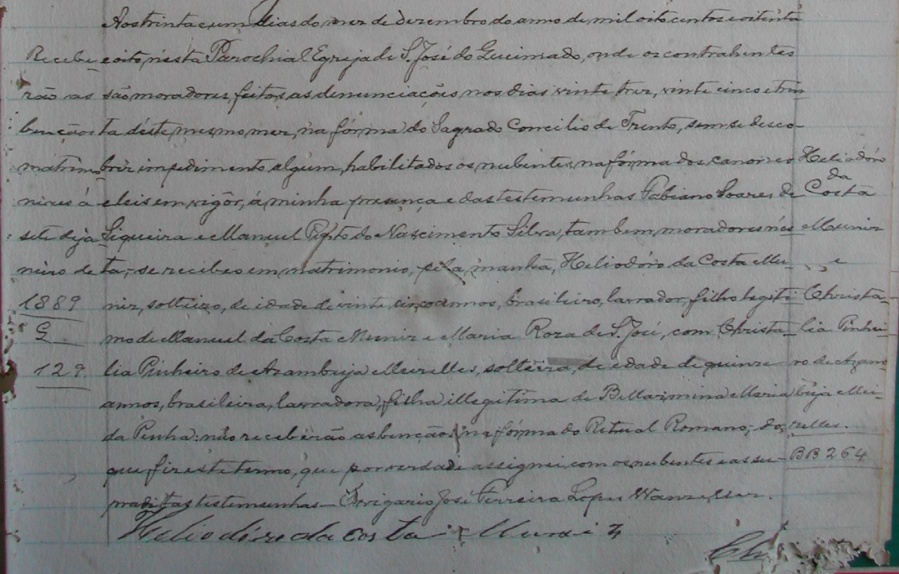 Aos trinta e um dias do mez de Dezembro do anno de mil oito centos e oitenta
e oito, nésta Parochial Egreja de S. José do Queimado, onde os contrahentes
são moradores, feitas as denunciações nos dias vinte trez, vinte cinco e trin
ta déste mesmo mez, na fórma do Sagrado Concilio de Trento, sem se desco-
brir impedimento algum, habilitados os nubentes na fórma dos canones
e leis em vigôr, á minha presença e das testemunhas Fabiano Soares de
Siqueira e Manuel Pinto do Nascimento Silva, tambem, moradores nés
ta; se recebeo em matrimonio, pela manhã, Heliodóro da Costa Mu-
niz, solteiro, de idade de vinte cinco annos, brasileiro, lavrador, filho legiti
mo de Manuel da Costa Muniz e Maria Roza de S. José, com Christa-
lia Pinheiro de Azambuja Meirelles, solteira, de idade de quinze
annos, brasileira, lavradora, filha illegitima de Bellarmina Maria
da Penha: não receberão as bençãos na fórma do Ritual Romano; do
que fiz este termo, que por verdade assignei com os nubentes e as su-
praditas testemunhas— O vigario José Ferreira Lopes Wanzeller.
Heliodóro da Costa Muniz
Ch
Recebe
rão as
bençãos
matrim
niaes á
sete de ja
neiro de
1889
G.
129
Heliodóro
da
Costa
Muniz
e
Christa-
lia Pinhei
ro de Azam
buja Mei-
relles.
BB 264